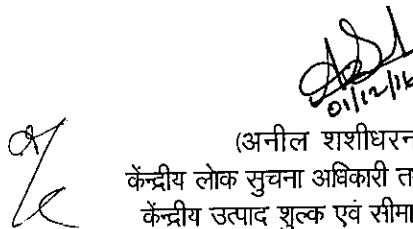 01/12/16
(अनील शशीधरन
केंद्रीय लोक सुचना अधिकारी त
केंद्रीय उत्पाद शुल्क एवं सीमा